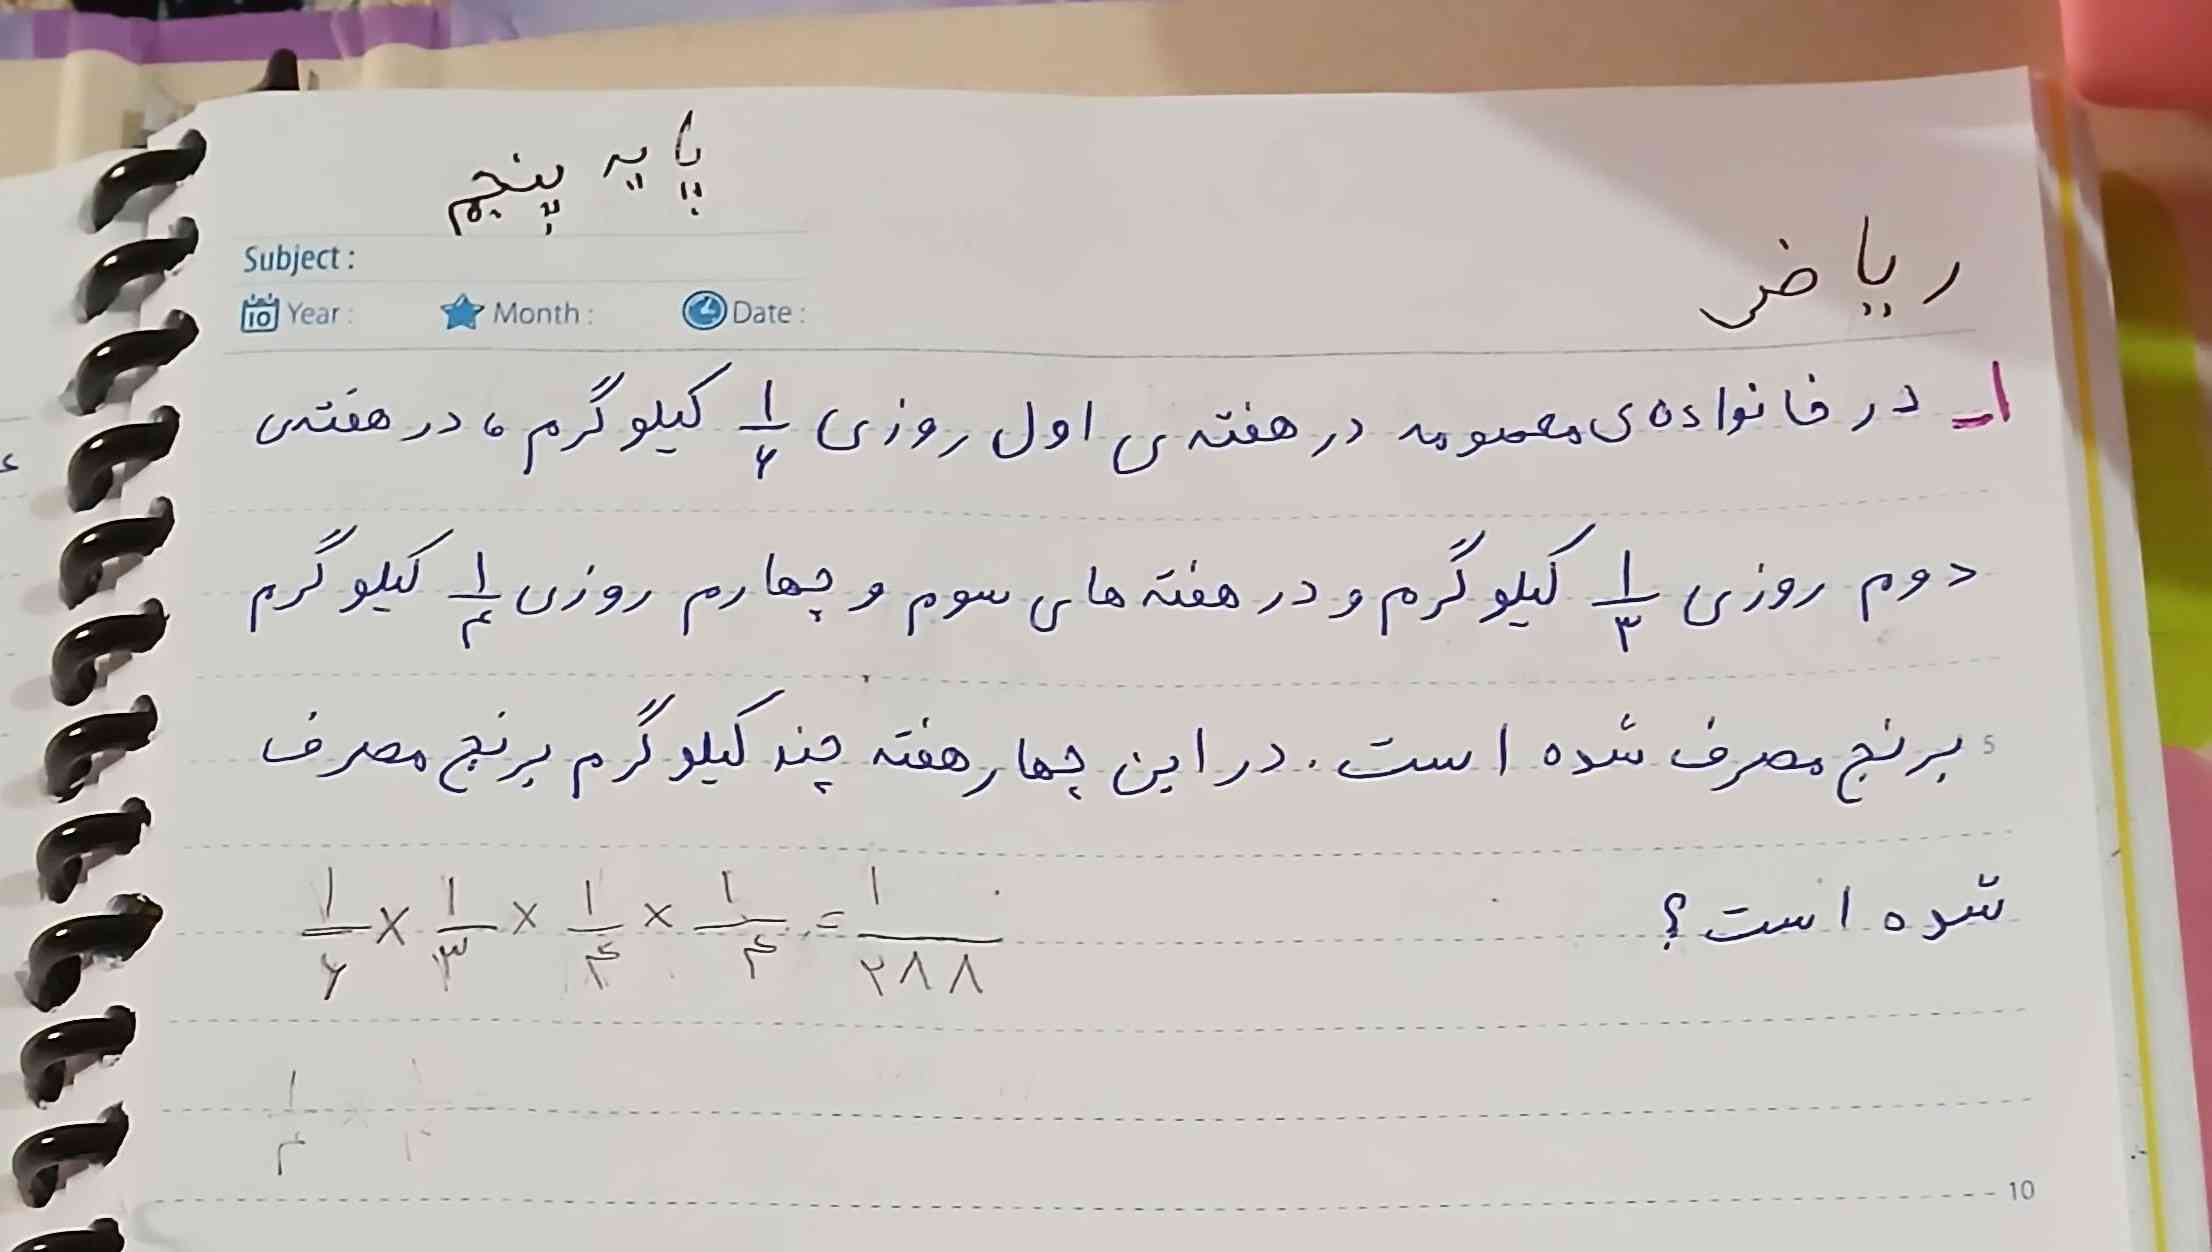 پایه پنجم
ریاض
Subject :
Year : Month : Date :
۱ـ در خانواده ی معصومه در هفته ی اول روزی ۱/۶ کیلوگرم، در هفته ی
دوم روزی ۱/۳ کیلوگرم و در هفته های سوم و چهارم روزی ۱/۴ کیلوگرم
برنج مصرف شده است. در این چهار هفته چند کیلوگرم برنج مصرف
5
شده است؟
۱/۶ × ۱/۳ × ۱/۴ × ۱/۴ = ۱/۲۸۸
10